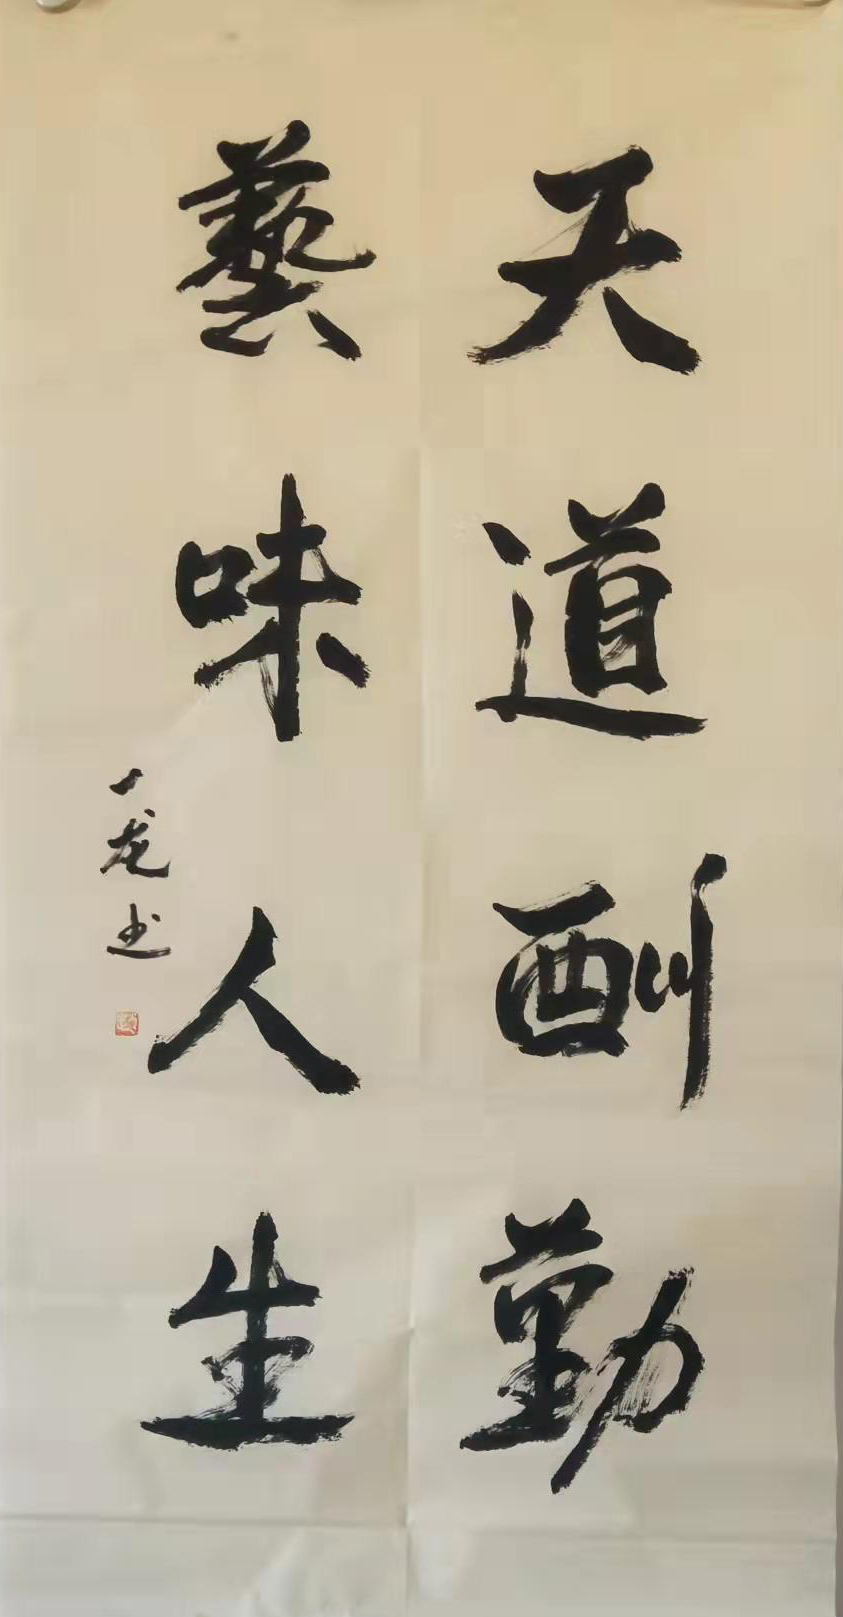 天道酬勤
藝味人生
一龙书